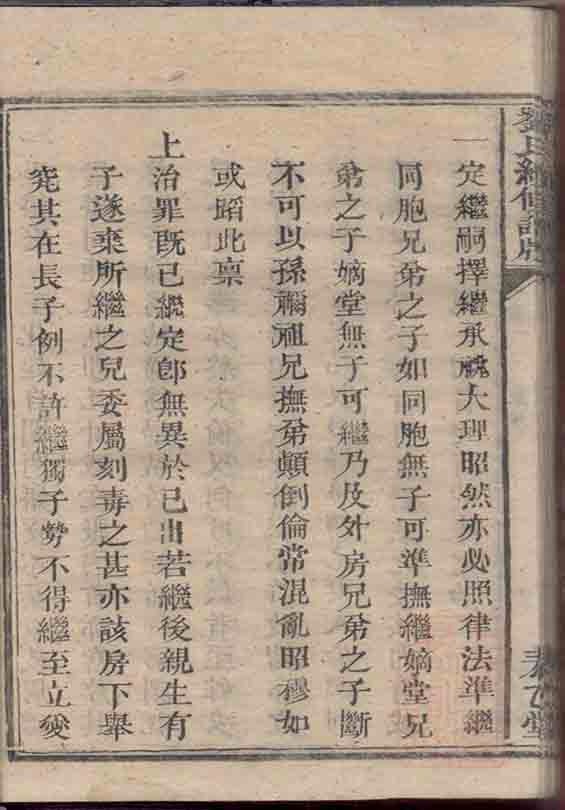 劉氏續修譜牒
一定繼嗣擇繼承祧大理昭然亦必照律法準繼
同胞兄弟之子如同胞無子可準撫繼嫡堂兄
弟之子嫡堂無子可繼乃及外房兄弟之子斷
不可以孫禰祖兄撫弟顛倒倫常混亂昭穆如
或蹈此稟
上治罪既已繼定卽無異於已出若繼後親生有
子遂棄所繼之兒委屬刻毒之甚亦該房下舉
究其在長子例不許繼獨子勢不得繼至立愛